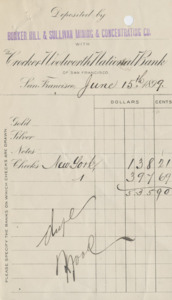 Deposited by
BUNKER HILL & SULLIVAN MINING & CONCENTRATING CO.
WITH
Crocker-Woolworth National Bank
OF SAN FRANCISCO
San Francisco, June 15th 1899.
DOLLARS CENTS
Gold
Silver
Notes
Checks New York 138 21
1 397 69
535 90
PLEASE SPECIFY THE BANKS ON WHICH CHECKS ARE DRAWN